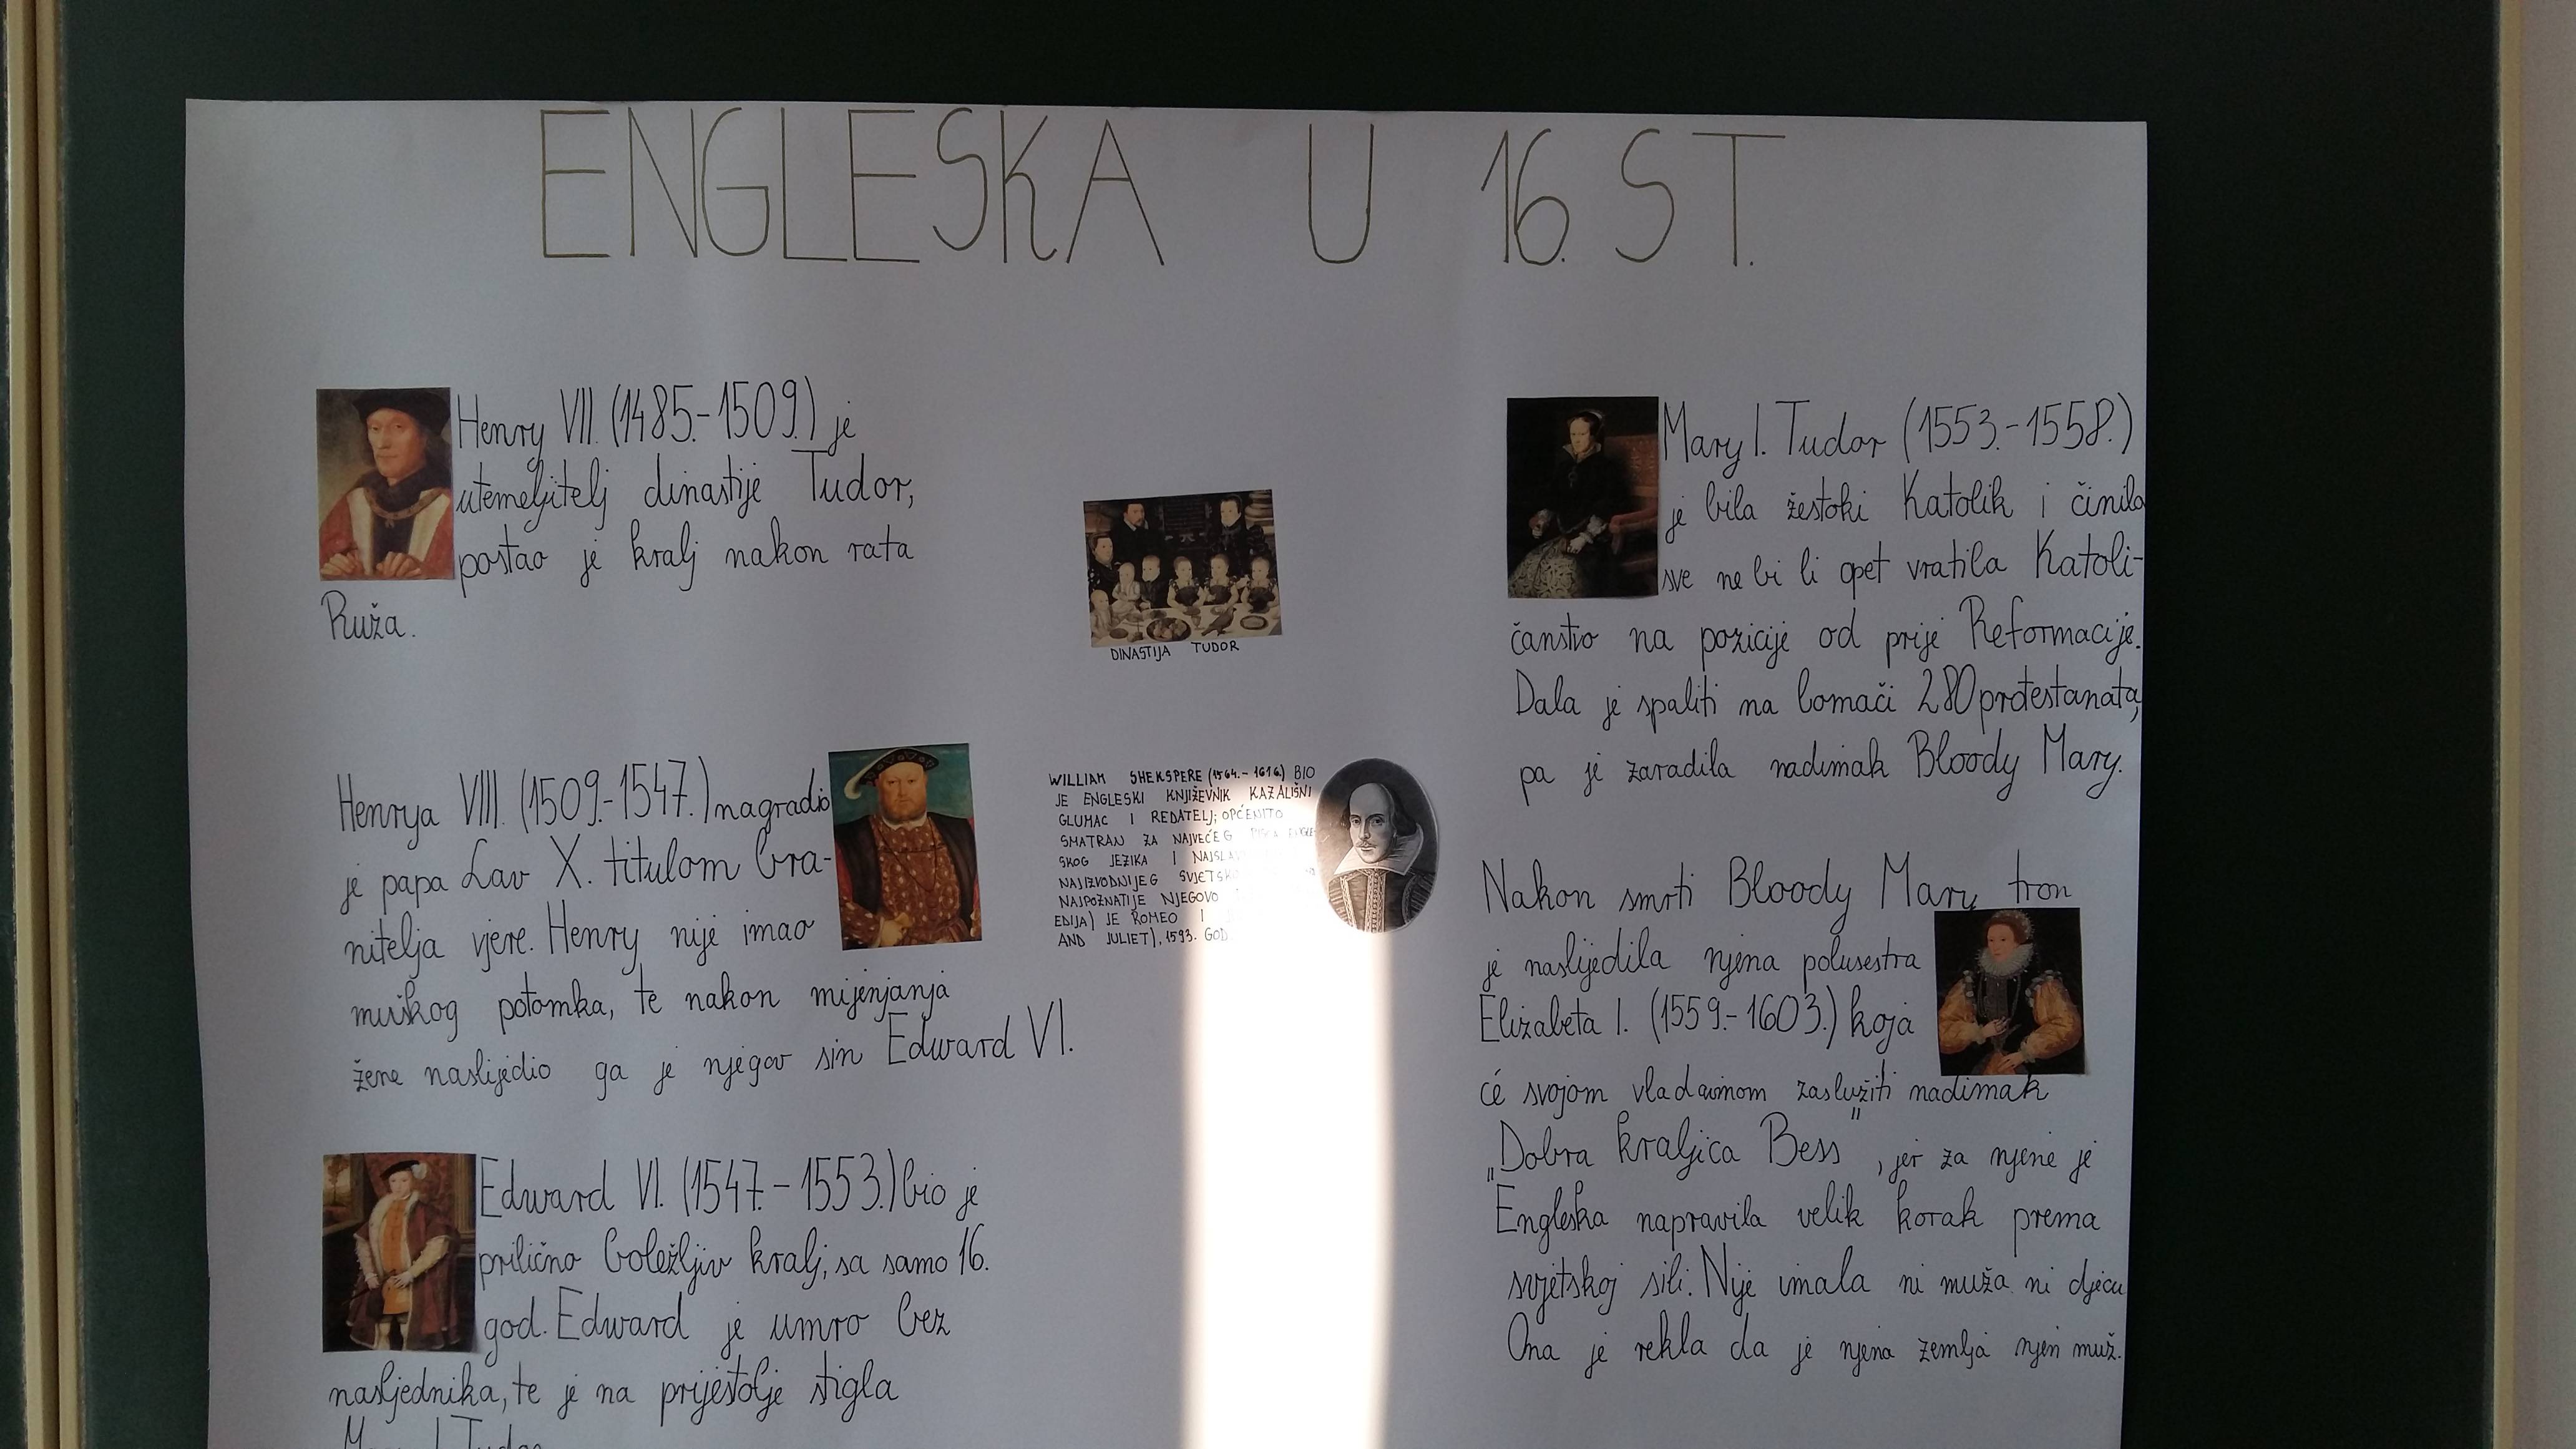 ENGLESKA U 16. ST.
Henry VII. (1485.-1509.) je
utemeljitelj dinastije Tudor,
postao je kralj nakon rata
Ruža.
Henrya VIII. (1509.-1547.) nagradio
je papa Lav X. titulom bra-
nitelja vjere. Henry nije imao
muškog potomka, te nakon mijenjanja
žene naslijedio ga je njegov sin Edward VI.
Edward VI. (1547.-1553.) bio je
prilično boležljiv kralj, sa samo 16.
god. Edward je umro bez
nasljednika, te je na prijestolje stigla
Mary I. Tudor
DINASTIJA TUDOR
WILLIAM SHEKSPERE (1564.-1616.) BIO
JE ENGLESKI KNJIŽEVNIK KAZALIŠNI
GLUMAC I REDATELJ; OPĆENITO
SMATRAN ZA NAJVEĆEG PISCA ENGLE-
SKOG JEZIKA I
NAJIZVODNIJEG
NAJPOZNATIJE NJEGOVO
EDIJA) JE ROMEO I
AND JULIET), 1593. GOD.
Mary I. Tudor (1553.-1558.)
je bila žestoki Katolik i činila
sve ne bi li opet vratila Katoli-
čanstvo na pozicije od prije Reformacije.
Dala je spaliti na lomači 280 protestanata,
pa je zaradila nadimak Bloody Mary.
Nakon smrti Bloody Mary tron
je naslijedila njena polusestra
Elizabeta I. (1559.-1603.) koja
će svojom vladavinom zaslužiti nadimak
„Dobra kraljica Bess", jer za njene je
Engleska napravila velik korak prema
svjetskoj sili. Nije imala ni muža ni djecu
Ona je rekla da je njena zemlja njen muž.